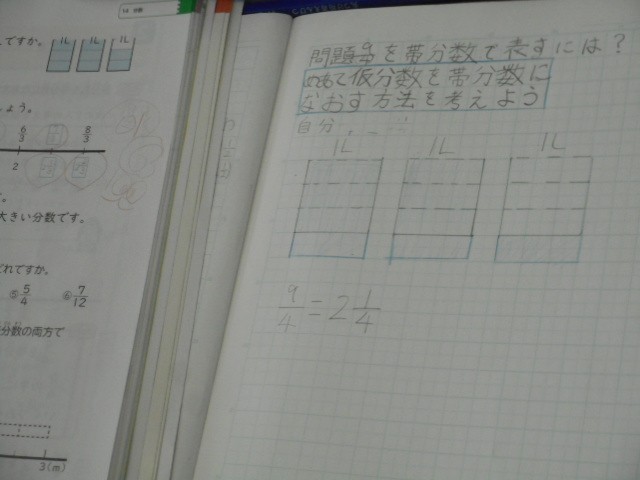 ですか。
1L 1L 1L
しよう。
6/3 8/3
2
大きい分数です。
どれですか。
⑤5/4 ⑥7/12
分数の両方で
3(m)
問題9/4を帯分数で表すには?
仮分数を帯分数に
なおす方法を考えよう
自分
1L 1L 1L
9/4=2 1/4